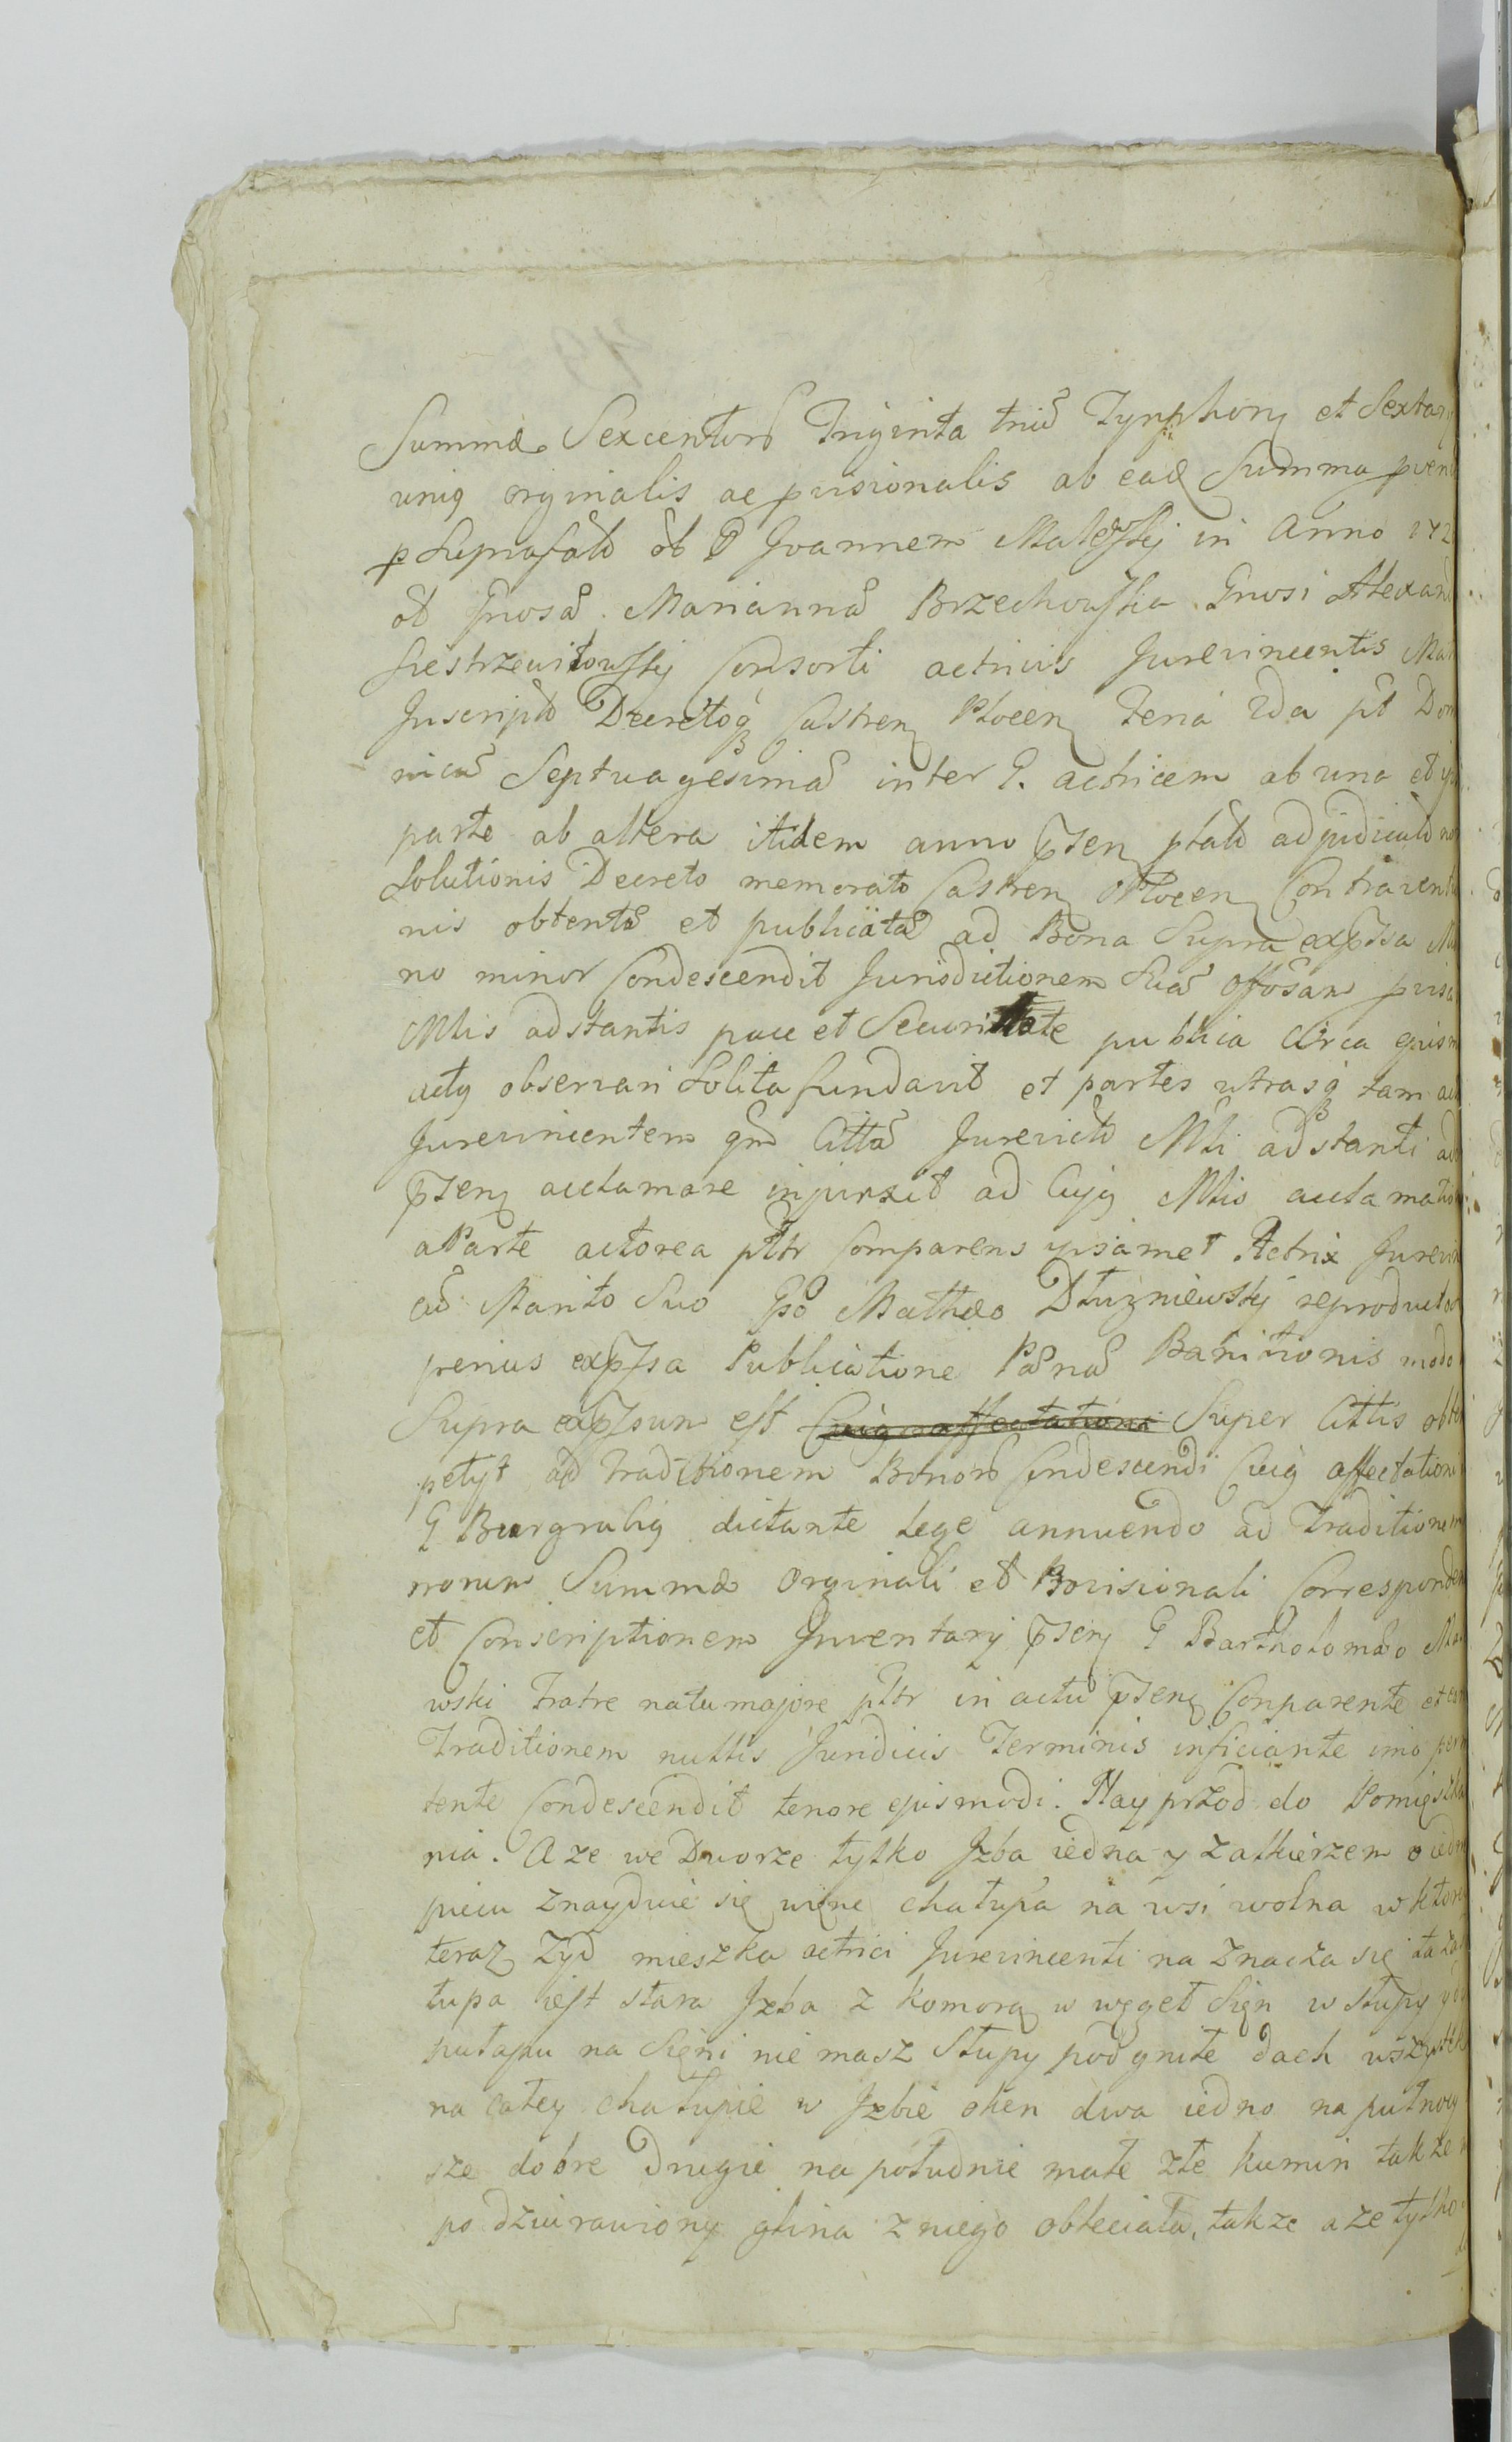 Summæ Sexcentorũ Triginta triũ Tynphonꝫ et Sextarꝫ
uniꝯ orginalis ac pvisionalis ab eadꝫ Summa pven
p Suprafatũ olt G Joannem Malewskj in Anno 172
olt Gnosã Mariannã Brzechowska Gnosi Alexand
Siestrzewitowskj Consorti actricis Jurevincentis
Inscriptũ Decretoqꝫ Castrenꝫ Plocenꝫ feria 2da pt Dom
nicã Septuagesimã inter G. actricem ab una et
parte ab altera itidem anno pñsen ptato adjudicatũ
Solutionis Decreto memorato Castrenꝫ Plocenꝫ Contraventi
nis obtentã et publicatã ad Bona Supra expssa
no minor Condescendit Jurisdictionem Suã offosam
Mlis adstantis pace et Securitate publica circa ejusm
actꝯ observari Solita fundavit et partes utrasqꝫ tam
Jurevincentem qm Cittã Jurevictũ Mli adstanti ad
pñsenꝫ acclamare injunxit ad Cujꝯ Mlis acclamatio
a Parte actorea pltr Comparens ipsamet Actrix Jurevin
cũ Marito Suo Gso Mathæo Dłużniewskj reproductor
prius expssa Publicatione Pænã Banitionis modo
Supra expssum est Cuiꝯ affectationi Super Cittis obten
petijt ad traditionem Bonorũ Condescendi Cuiꝯ affectationi
G Burgrabiꝯ dictante lege annuendo ad Traditionem
norum Summæ Orginali et Provisionali Corresponden
et Conscriptionem Inventarij pñsenꝫ G Bartholomæo
wski fratre natu majore pltr in actu pñsenꝫ Conparente et
Traditionem nullis Juridicis Terminis inficiante imo per
tente Condescendit tenore ejusmodi. Nayprzod do Pomięszka
nia. A ze we Dworze tylko Jzba iedna y z alkierzem o iedn
piecu znayduie się więne chałupa na wsi wolna w ktore
teraz Zyd mieszka actrici Jurevincenti na znacza się ta
łupa iest stara Jzba z komorą w węgeł Sięn w słupy
pułapu na Sięni nie masz Słupy podgniłe dach wszystek
na całey chałupie w Jzbie okien dwa iedno na pułnocy
sze dobre Drugie na południe małe złe kumin takze
podziurawiony glina z niego obleciała, takze aze tylko